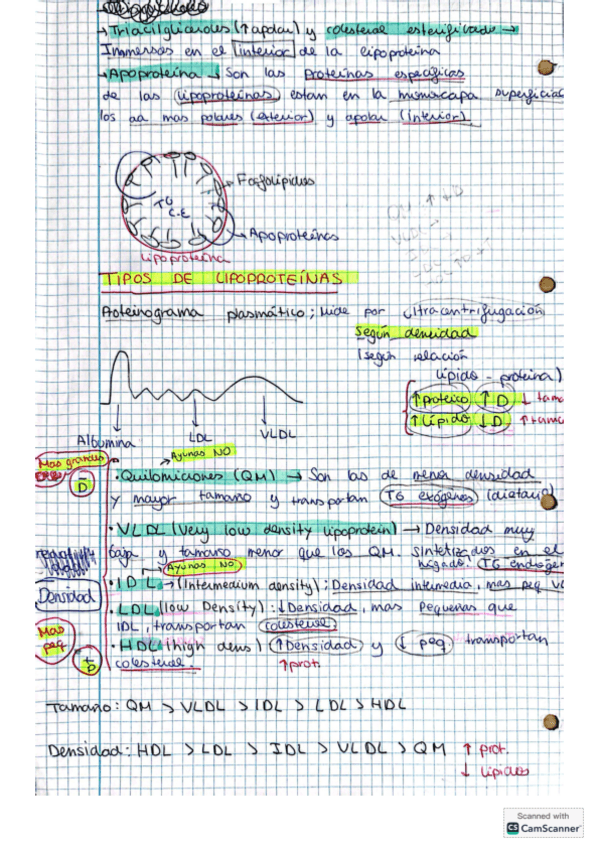 → Triacilgliceroles (↑ apolar) y colesterol esterificado →
Inmersos en el interior de la lipoproteína
→ Apoproteína → Son las proteínas específicas
de las (lipoproteínas) estan en la monocapa superficial
los aa mas polares (exterior) y apolar (interior).
Fosfolípidos
TG
C.E
Apoproteínas
Lipoproteína
QM
VLDL
TIPOS DE LIPOPROTEÍNAS
Proteinograma plasmático; Mide por ultracentrifugación
según densidad
(según relación
lípido - proteína)
↑ Proteico ↑ D ↓ tama
↑ Lípido ↓ D ↑ tama
Albumina
LDL
VLDL
Ayunas NO
Mas grandes
D
• Quilomicrones (QM) → Son las de menor densidad
y mayor tamaño y transportan (TG exógenos) (dietario)
• VLDL (Very low density lipoprotein) → Densidad muy
baja y tamaño menor que los QM. Sintetizados en el
hígado. (TG endogen
Ayunas NO
• IDL → (Intermedium density): Densidad intermedia, mas peq VL
Densidad
• LDL (low Density): ↓ Densidad, mas pequeñas que
IDL, transportan colesterol
Mas peq
+ D
• HDL (high dens) ↑ Densidad y ↓ peq transportan
colesterol.
↑ prot.
Tamaño: QM > VLDL > IDL > LDL > HDL
Densidad: HDL > LDL > IDL > VLDL > QM ↑ prot.
↓ lípidos
Scanned with
CS CamScanner